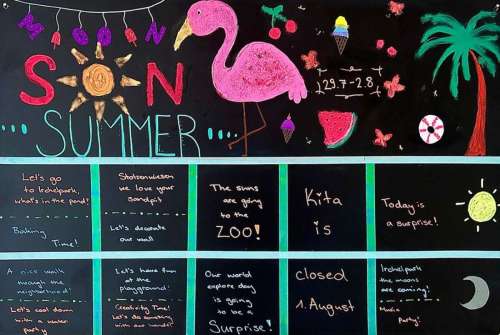 MOON
SUN
SUMMER
29.7-2.8
Let's go
to Irchelpark,
what's in the pond?
Baking
Time!
Stolzenwiesen
we love your
sandpit
Let's decorate
our wall
The suns
are going
to the
ZOO!
Kita
is
Today is
a surprise!
A nice walk
through the
neighborhood!
Let's cool down
with a water
party
Let's have fun
at the
playground!
Creativity Time!
Let's do something
with our hands!
Our world
explore day
is going
to be a
Surprise!
closed
1. August
Irchelpark
the moons
are coming!
Music
Party!